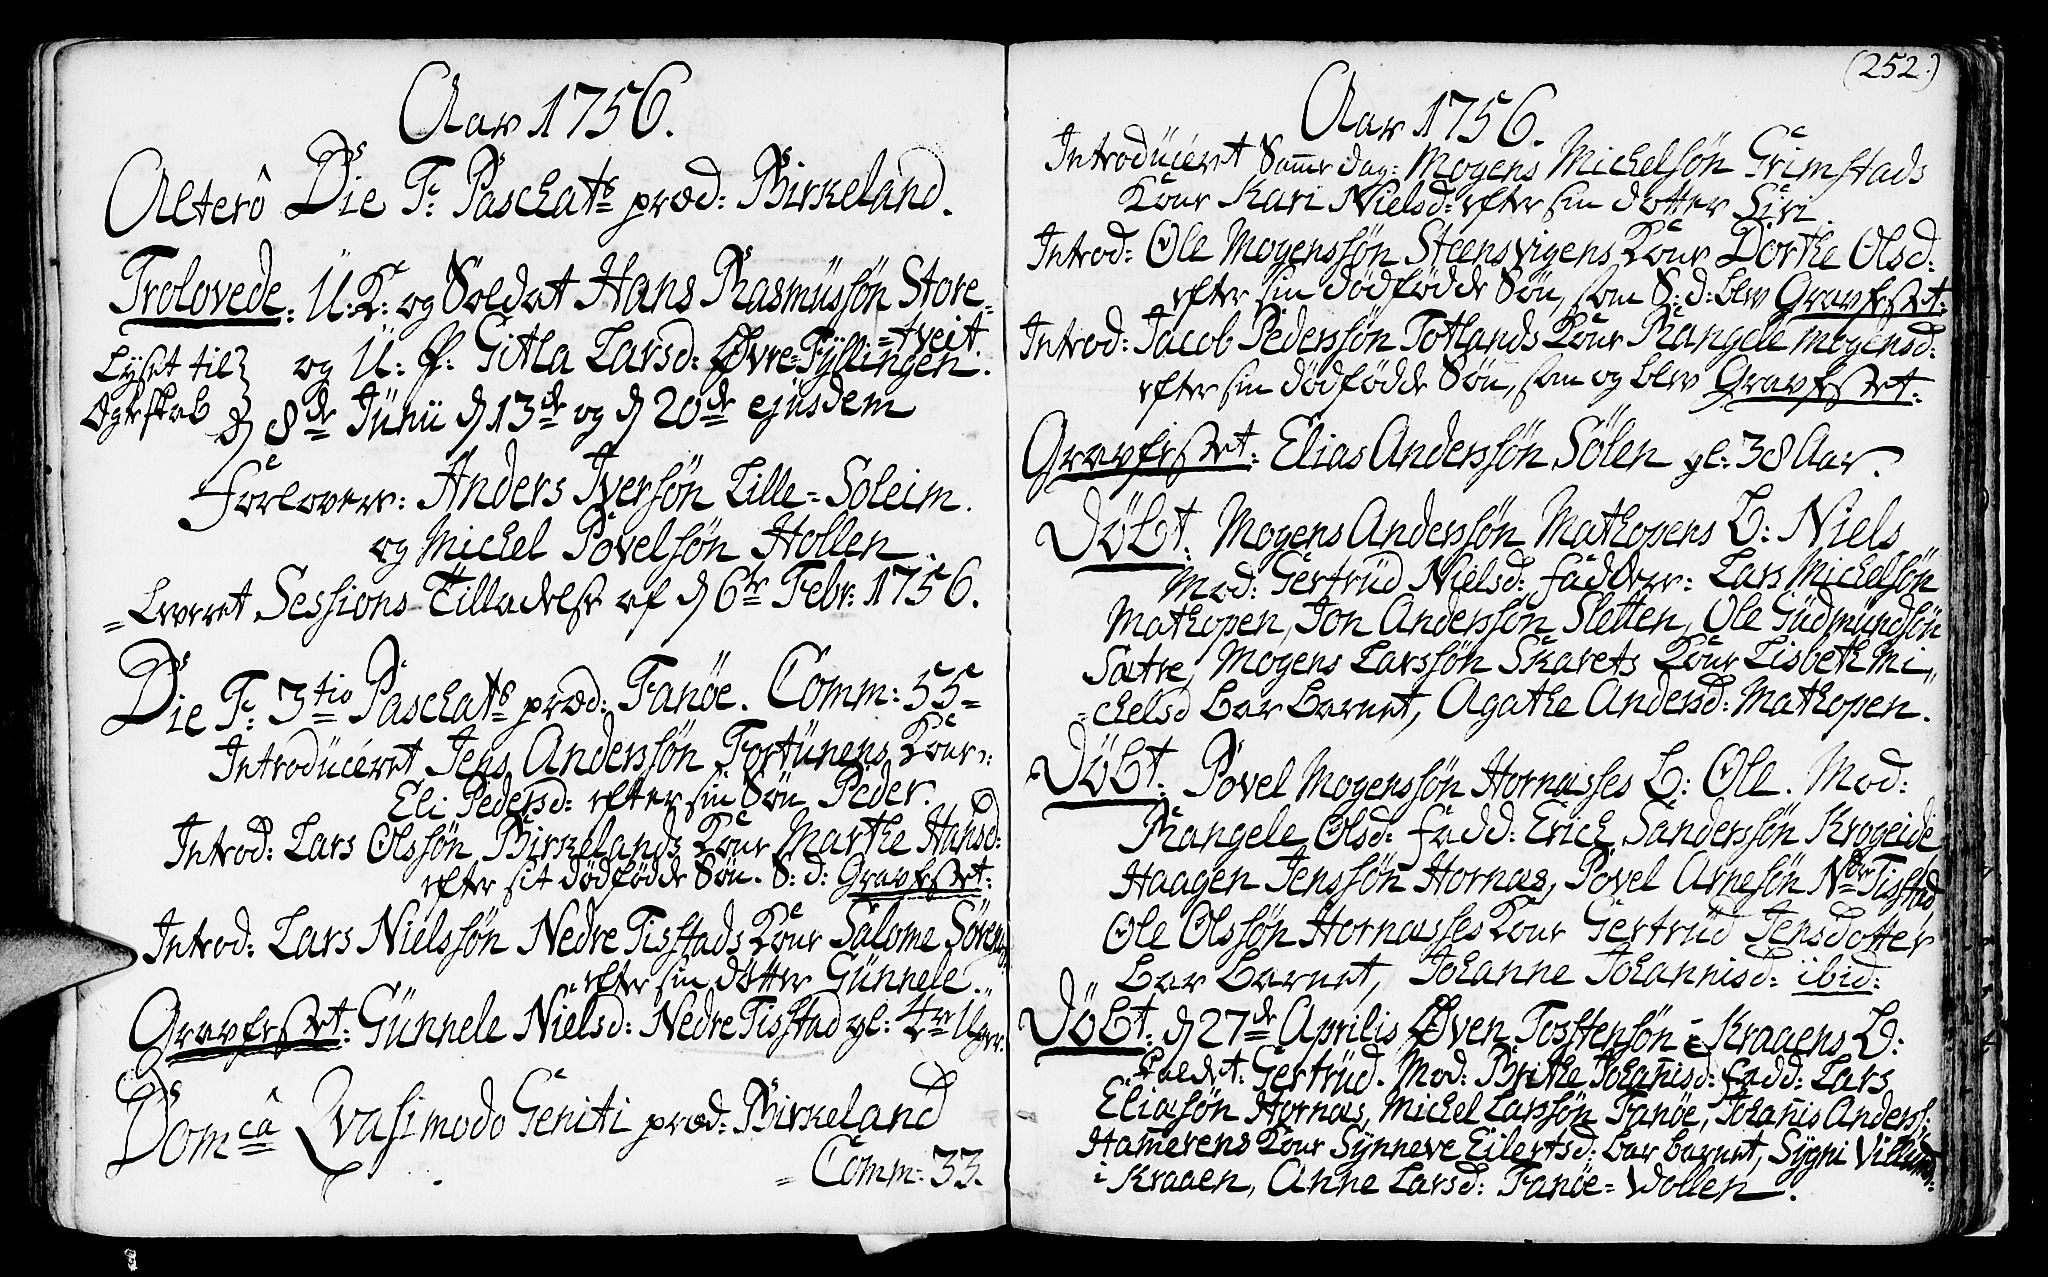 Aar 1756.
Alterô Die F: Paschats præd: Birkeland.
Trolovede: U:K: og Soldat Hans Rasmüssön Store-
=tveit.
Lyset til og U: P: Gitla Larsd: Øvre-Fyllingen.
Egteskab d 8de Junii d 13de og d 20de ejusdem
Forlovere: Anders Iversön Lille=Soleim.
og Michel Povelsön Hollen.
=Leveret Sessions Tilladelse af d 6te Febr: 1756.
Die F: 3tio Paschats præd: Fanöe. Comm: 55=
Introdüceret Jens Anderssön Fortünens Kone:
Eli Pedersd: efter sin Sön Peder.
Introd: Lars Olssön Birkelands Kone Marthe Hansd:
efter sit dödfödde Sön. S: d: Gravfestet:
Introd: Lars Nielssön Nedre Tisstads Kone Salome Sörensd:
efter sin dotter Günnele.
Gravfestet: Günnele Nielsd: Nedre Tisstad gl: 4re Uger.
Domcâ Qvasimodo Geniti præd: Birkeland
= Comm: 33.
(252.)
Aar 1756.
Introdüceret Samme dag: Mogens Michelsön Grimstads
Kone Kari Nielsd: efter sin dotter Siri.
Introd: Ole Mogenssön Steensvigens Kone Dorthe Olsd:
efter sin dödfödde Sön, som S: d: blev Gravfestet:
Introd: Jacob Pederssön Totlands Kone Rangele Mogensd:
efter sin dödfödde Sön, som og blev Gravfestet:
Gravfestet: Elias Anderssön Sölen gl: 38 Aar.
Döbt: Mogens Anderssön Mathopens B: Niels
Mod: Gertrüd Nielsd: Faddere: Lars Michelsön
Mathopen, Jon Anderssön Sletten, Ole Güdmündsön
Sætre, Mogens Larssön Skarets Kone Lisbeth Mi,,
=chelsd bar barnet, Agathe Andersd: Mathopen.
Döbt: Povel Mogenssön Hornæsses B: Ole. Mod:
Rangele Olsd: Fadd: Erick Sanderssön Krogeide,
Haagen Jenssön Hornæs, Povel Arnesön Ndre Tisstad,
Ole Olssön Hornæsses Kone Gertrüd Jensdotter
bar barnet, Johanne Johannisd: ibid:
Döbt: d 27de Aprilis Øven Tosstensön i Kraaens B:
kaldet: Gertrüd. Mod: Brithe Johanisd: Fadd: Lars
Eliasön Hornæs, Michel Larssön Fanöe, Johanis Anderss:
Hamerens Kone Synneve Eilertsd: bar barnet, Sygni
i Kraaen, Anne Larsd: Fanöe=Wollen.